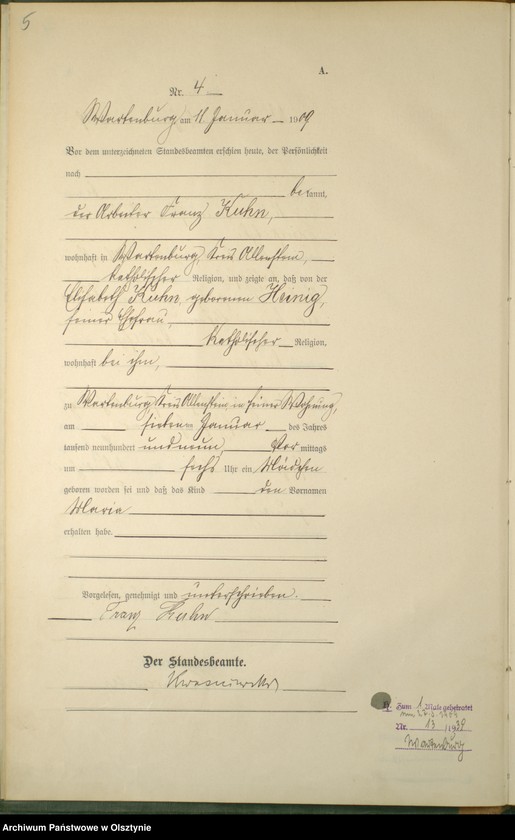 5
A.
Nr. 4
Wartenburg am 11 Januar 1909
Vor dem unterzeichneten Standesbeamten erschien heute, der Persönlichkeit
nach
bekannt,
der Arbeiter Franz Kuhn,
wohnhaft in Wartenburg, Kreis Allenstein,
katholischer Religion, und zeigte an, daß von der
Elisabeth Kuhn, geborenen Heinig,
seiner Ehefrau,
katholischer Religion,
wohnhaft bei ihm,
zu Wartenburg Kreis Allenstein, in seiner Wohnung,
am sieben Januar des Jahres
tausend neunhundert und neun, Vor mittags
um sechs Uhr ein Mädchen
geboren worden sei und daß das Kind den Vornamen
Maria
erhalten habe.
Vorgelesen, genehmigt und unterschrieben.
Franz Kuhn
Der Standesbeamte.
Zum 1 Male geheiratet
Nr. 13 /1939
Wartenburg
Archiwum Państwowe w Olsztynie